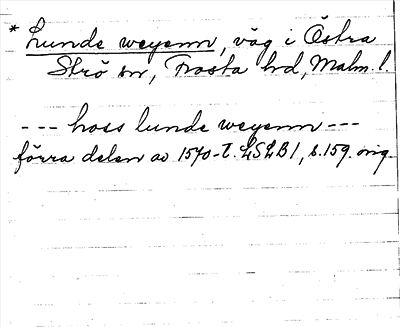 * Lunde weyenn, väg i Östra
Strö sn, Frosta hd, Malm. l.
--- hoss lunde weyenn ---
förra delen av 1570-t. LSLB 1, s. 159. orig.